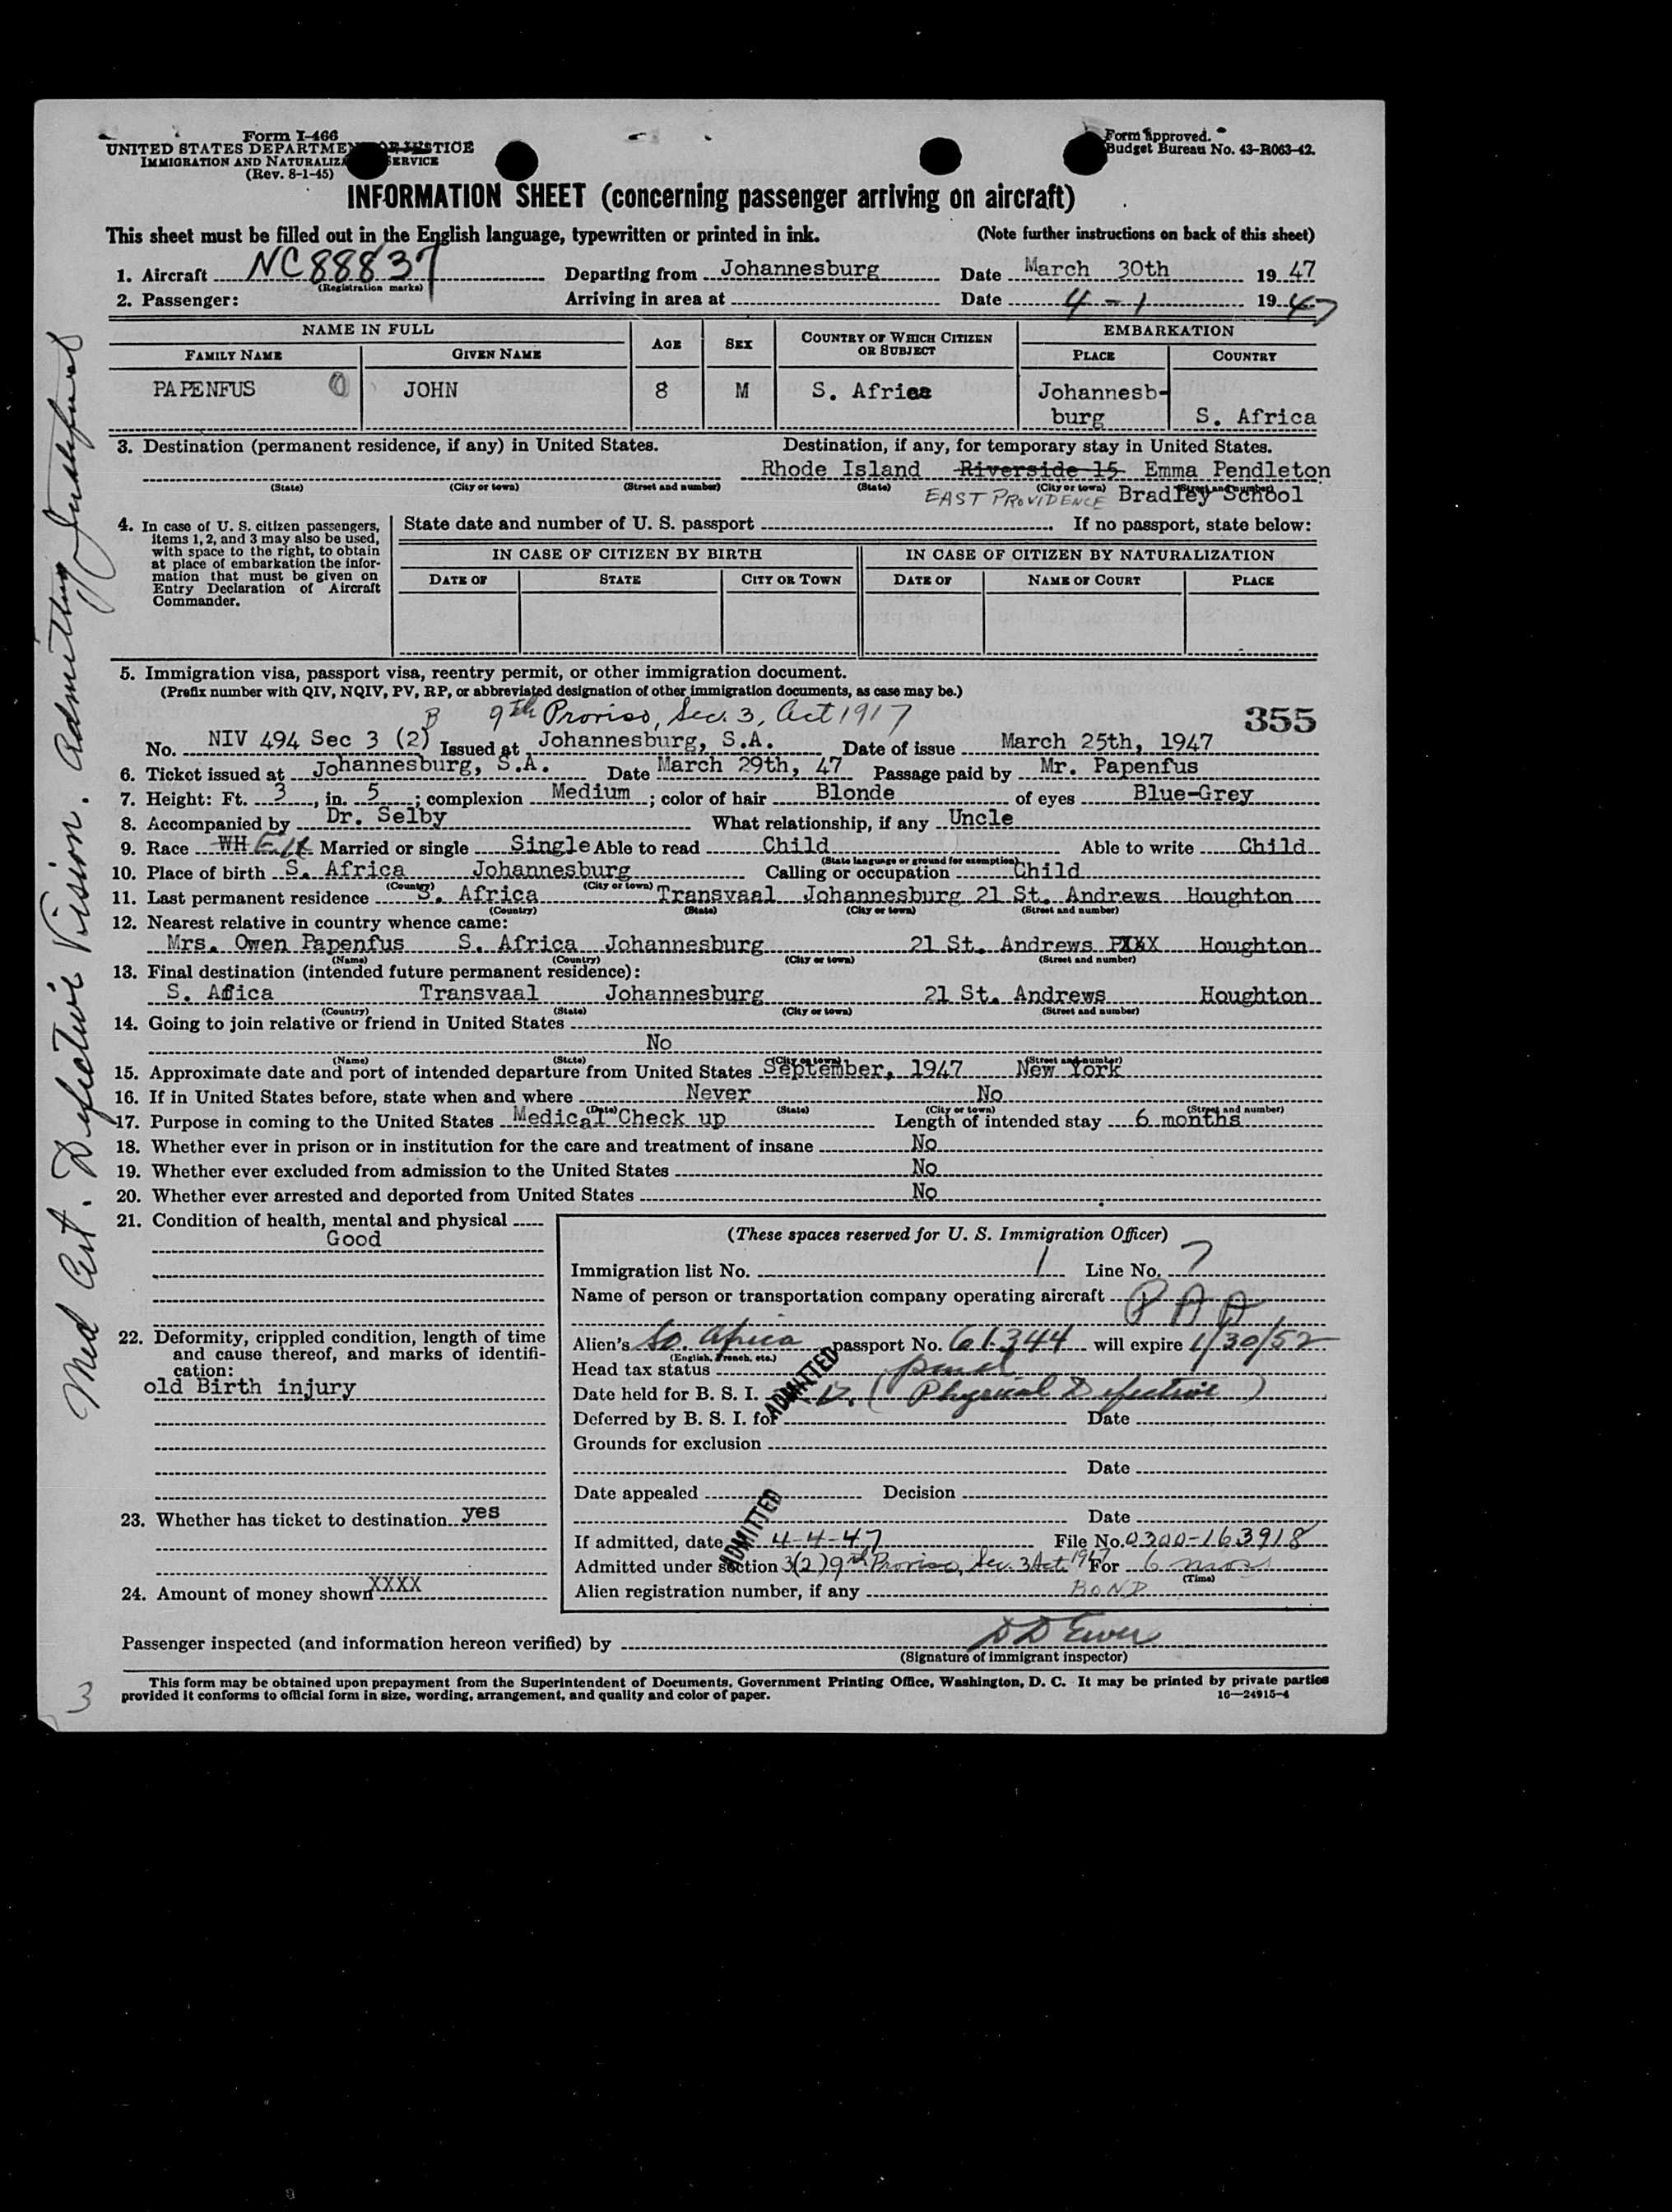 Form I-466
UNITED STATES DEPARTMENT OF JUSTICE
IMMIGRATION AND NATURALIZATION SERVICE
(Rev. 8-1-45)
Form approved.
Budget Bureau No. 43-R063-42.
INFORMATION SHEET (concerning passenger arriving on aircraft)
This sheet must be filled out in the English language, typewritten or printed in ink. (Note further instructions on back of this sheet)
1. Aircraft NC88837 Departing from Johannesburg Date March 30th 1947
(Registration marks)
2. Passenger: Arriving in area at Date 4-1 1947
NAME IN FULL AGE SEX COUNTRY OF WHICH CITIZEN OR SUBJECT EMBARKATION
FAMILY NAME GIVEN NAME PLACE COUNTRY
PAPENFUS JOHN 8 M S. Africa Johannesb-
burg S. Africa
3. Destination (permanent residence, if any) in United States. Destination, if any, for temporary stay in United States.
Rhode Island Riverside 15 Emma Pendleton
(State) (City or town) (Street and number) (State) (City or town) (Street and number)
EAST PROVIDENCE Bradley School
4. In case of U. S. citizen passengers, items 1, 2, and 3 may also be used, with space to the right, to obtain at place of embarkation the information that must be given on Entry Declaration of Aircraft Commander.
State date and number of U. S. passport If no passport, state below:
IN CASE OF CITIZEN BY BIRTH IN CASE OF CITIZEN BY NATURALIZATION
DATE OF STATE CITY OR TOWN DATE OF NAME OF COURT PLACE
5. Immigration visa, passport visa, reentry permit, or other immigration document.
(Prefix number with QIV, NQIV, PV, RP, or abbreviated designation of other immigration documents, as case may be.)
B 9th Proviso, Sec. 3, Act 1917 355
No. NIV 494 Sec 3 (2) Issued at Johannesburg, S.A. Date of issue March 25th, 1947
6. Ticket issued at Johannesburg, S.A. Date March 29th, 47 Passage paid by Mr. Papenfus
7. Height: Ft. 3, in. 5; complexion Medium; color of hair Blonde of eyes Blue-Grey
8. Accompanied by Dr. Selby What relationship, if any Uncle
9. Race WH Married or single Single Able to read Child Able to write Child
(State language or ground for exemption)
10. Place of birth S. Africa Johannesburg Calling or occupation Child
(Country) (City or town)
11. Last permanent residence S. Africa Transvaal Johannesburg 21 St. Andrews Houghton
(Country) (State) (City or town) (Street and number)
12. Nearest relative in country whence came:
Mrs. Owen Papenfus S. Africa Johannesburg 21 St. Andrews Houghton
(Name) (Country) (City or town) (Street and number)
13. Final destination (intended future permanent residence):
S. Africa Transvaal Johannesburg 21 St. Andrews Houghton
(Country) (State) (City or town) (Street and number)
14. Going to join relative or friend in United States
No
(Name) (State) (City or town) (Street and number)
15. Approximate date and port of intended departure from United States September, 1947 New York
16. If in United States before, state when and where Never No
(Date) (State) (City or town) (Street and number)
17. Purpose in coming to the United States Medical Check up Length of intended stay 6 months
18. Whether ever in prison or in institution for the care and treatment of insane No
19. Whether ever excluded from admission to the United States No
20. Whether ever arrested and deported from United States No
21. Condition of health, mental and physical
Good
22. Deformity, crippled condition, length of time and cause thereof, and marks of identification:
old Birth injury
23. Whether has ticket to destination yes
24. Amount of money shown XXXX
(These spaces reserved for U. S. Immigration Officer)
Immigration list No. 1 Line No. 7
Name of person or transportation company operating aircraft PAA
Alien's So. Africa passport No. 61344 will expire 1/30/52
(English, French, etc.)
Head tax status
Date held for B. S. I. (Physical Defective)
ADMITTED
Deferred by B. S. I. for Date
Grounds for exclusion
Date
Date appealed Decision
Date
ADMITTED
If admitted, date 4-4-47 File No. 0300-163918
Admitted under section 3(2) 9th Proviso, Sec. 3 Act 1917 For 6 mos
(Time)
Alien registration number, if any BOND
Passenger inspected (and information hereon verified) by
(Signature of immigrant inspector)
This form may be obtained upon prepayment from the Superintendent of Documents, Government Printing Office, Washington, D. C. It may be printed by private parties
provided it conforms to official form in size, wording, arrangement, and quality and color of paper. 16—24915-4
Med Cert. Defective Vision.
3